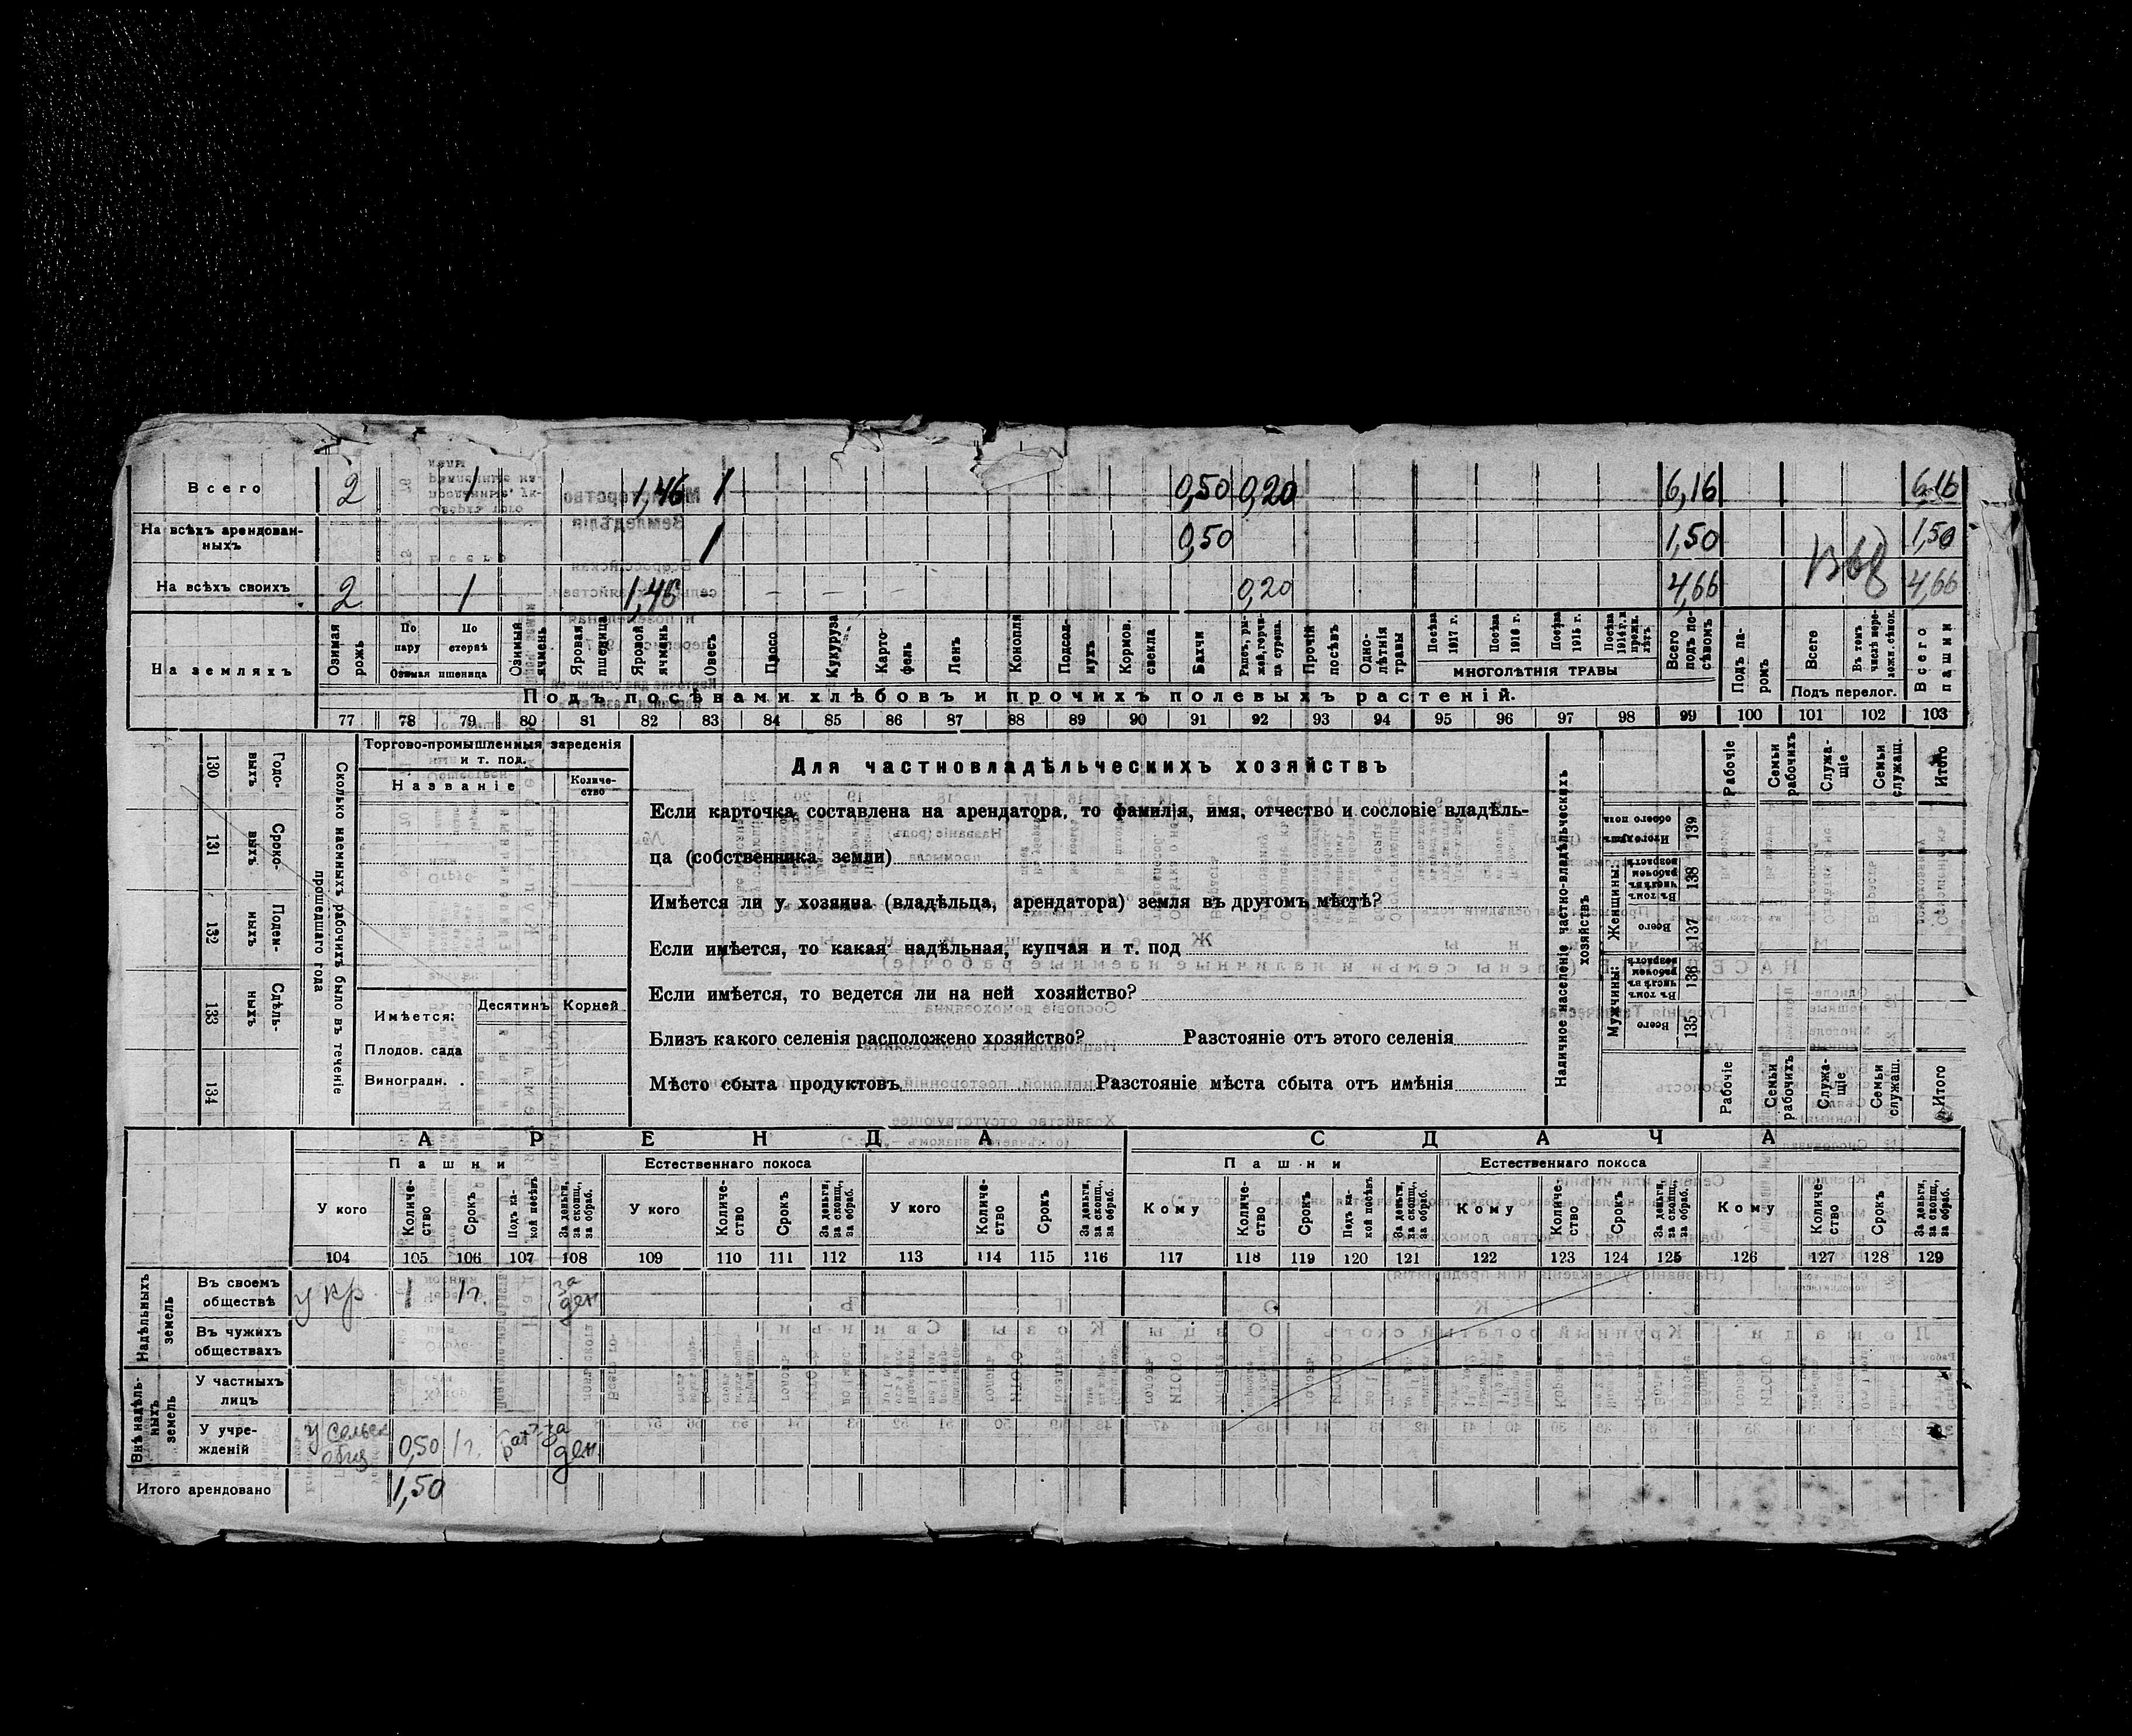 Всего 2 1 1,46 1 0,50 0,20 6,16 6,16
На всѣхъ арендован-
ныхъ 1 0,50 1,50 1,50
На всѣхъ своихъ 2 1 1,46 0,20 4,66 4,66
На земляхъ
Озимая рожь
По пару
По стернѣ
Озимая пшеница
Озимый ячмень
Яровая пшеница
Яровой ячмень
Овесъ
Просо
Кукуруза
Карто-
фель
Ленъ
Конопля
Подсол-
нухъ
Кормов. свекла
Бахчи
Рапсъ, ры-
жей, горчи-
ца сурепа.
Прочій посѣвъ
Одно-
лѣтнія травы
Посѣва 1917 г.
Посѣва 1916 г.
Посѣва 1915 г.
Посѣва 1914 г. и прежн. лѣтъ
МНОГОЛѢТНІЯ ТРАВЫ
Всего подъ по-
сѣвомъ
Подъ па-
ромъ
Всего
Въ томъ числѣ пере-
ложн. сѣнок.
Подъ перелог.
Всего пашни
Подъ посѣвами хлѣбовъ и прочихъ полевыхъ растеній.
77 78 79 80 81 82 83 84 85 86 87 88 89 90 91 92 93 94 95 96 97 98 99 100 101 102 103
130 Годо-
выхъ
131 Сроко-
выхъ
132 Поден-
ныхъ
133 Сдѣль-
ныхъ
134
Сколько наемныхъ рабочихъ было въ теченіе
прошедшаго года
Торгово-промышленныя заведенія
и т. под.
Названіе
Количе-
ство
Имѣется:
Десятинъ Корней
Плодов. сада
Виноградн. .
Для частновладѣльческихъ хозяйствъ
Если карточка составлена на арендатора, то фамилія, имя, отчество и сословіе владѣль-
ца (собственника земли)
Имѣется ли у хозяина (владѣльца, арендатора) земля въ другомъ мѣстѣ?
Если имѣется, то какая: надѣльная, купчая и т. под
Если имѣется, то ведется ли на ней хозяйство?
Близъ какого селенія расположено хозяйство? Разстояніе отъ этого селенія
Мѣсто сбыта продуктовъ Разстояніе мѣста сбыта отъ имѣнія
Наличное населеніе частно-владѣльческихъ
хозяйствъ
Рабочіе
Семьи рабочихъ
Служа-
щіе
Семьи служащ.
Итого
Итого душъ обоего пола 139
Женщины:
Въ томъ числѣ въ рабочемъ возрастѣ 138
Всего 137
Мужчины:
Въ томъ числѣ въ рабочемъ возрастѣ 136
Всего 135
Рабочіе
Семьи рабочихъ
Служа-
щіе
Семьи служащ.
Итого
АРЕНДА СДАЧА
Пашни Естественнаго покоса Пашни Естественнаго покоса
У кого
Количе-
ство
Срокъ
Подъ ка-
кой посѣвъ
За деньги, за скопщ., за обраб.
У кого
Количе-
ство
Срокъ
За деньги, за скопщ., за обраб.
У кого
Количе-
ство
Срокъ
За деньги, за скопщ., за обраб.
Кому
Количе-
ство
Срокъ
Подъ ка-
кой посѣвъ
За деньги, за скопщ., за обраб.
Кому
Количе-
ство
Срокъ
За деньги, за скопщ., за обраб.
Кому
Количе-
ство
Срокъ
За деньги, за скопщ., за обраб.
104 105 106 107 108 109 110 111 112 113 114 115 116 117 118 119 120 121 122 123 124 125 126 127 128 129
Надѣльныхъ
земель
Въ своемъ
обществѣ у кр. 1 1 г. за
ден
Въ чужихъ
обществахъ
Внѣ надѣль-
ныхъ
земель
У частныхъ
лицъ
У учре-
жденій у сельск
общ 0,50 1 г. за
ден.
Итого арендовано 1,50